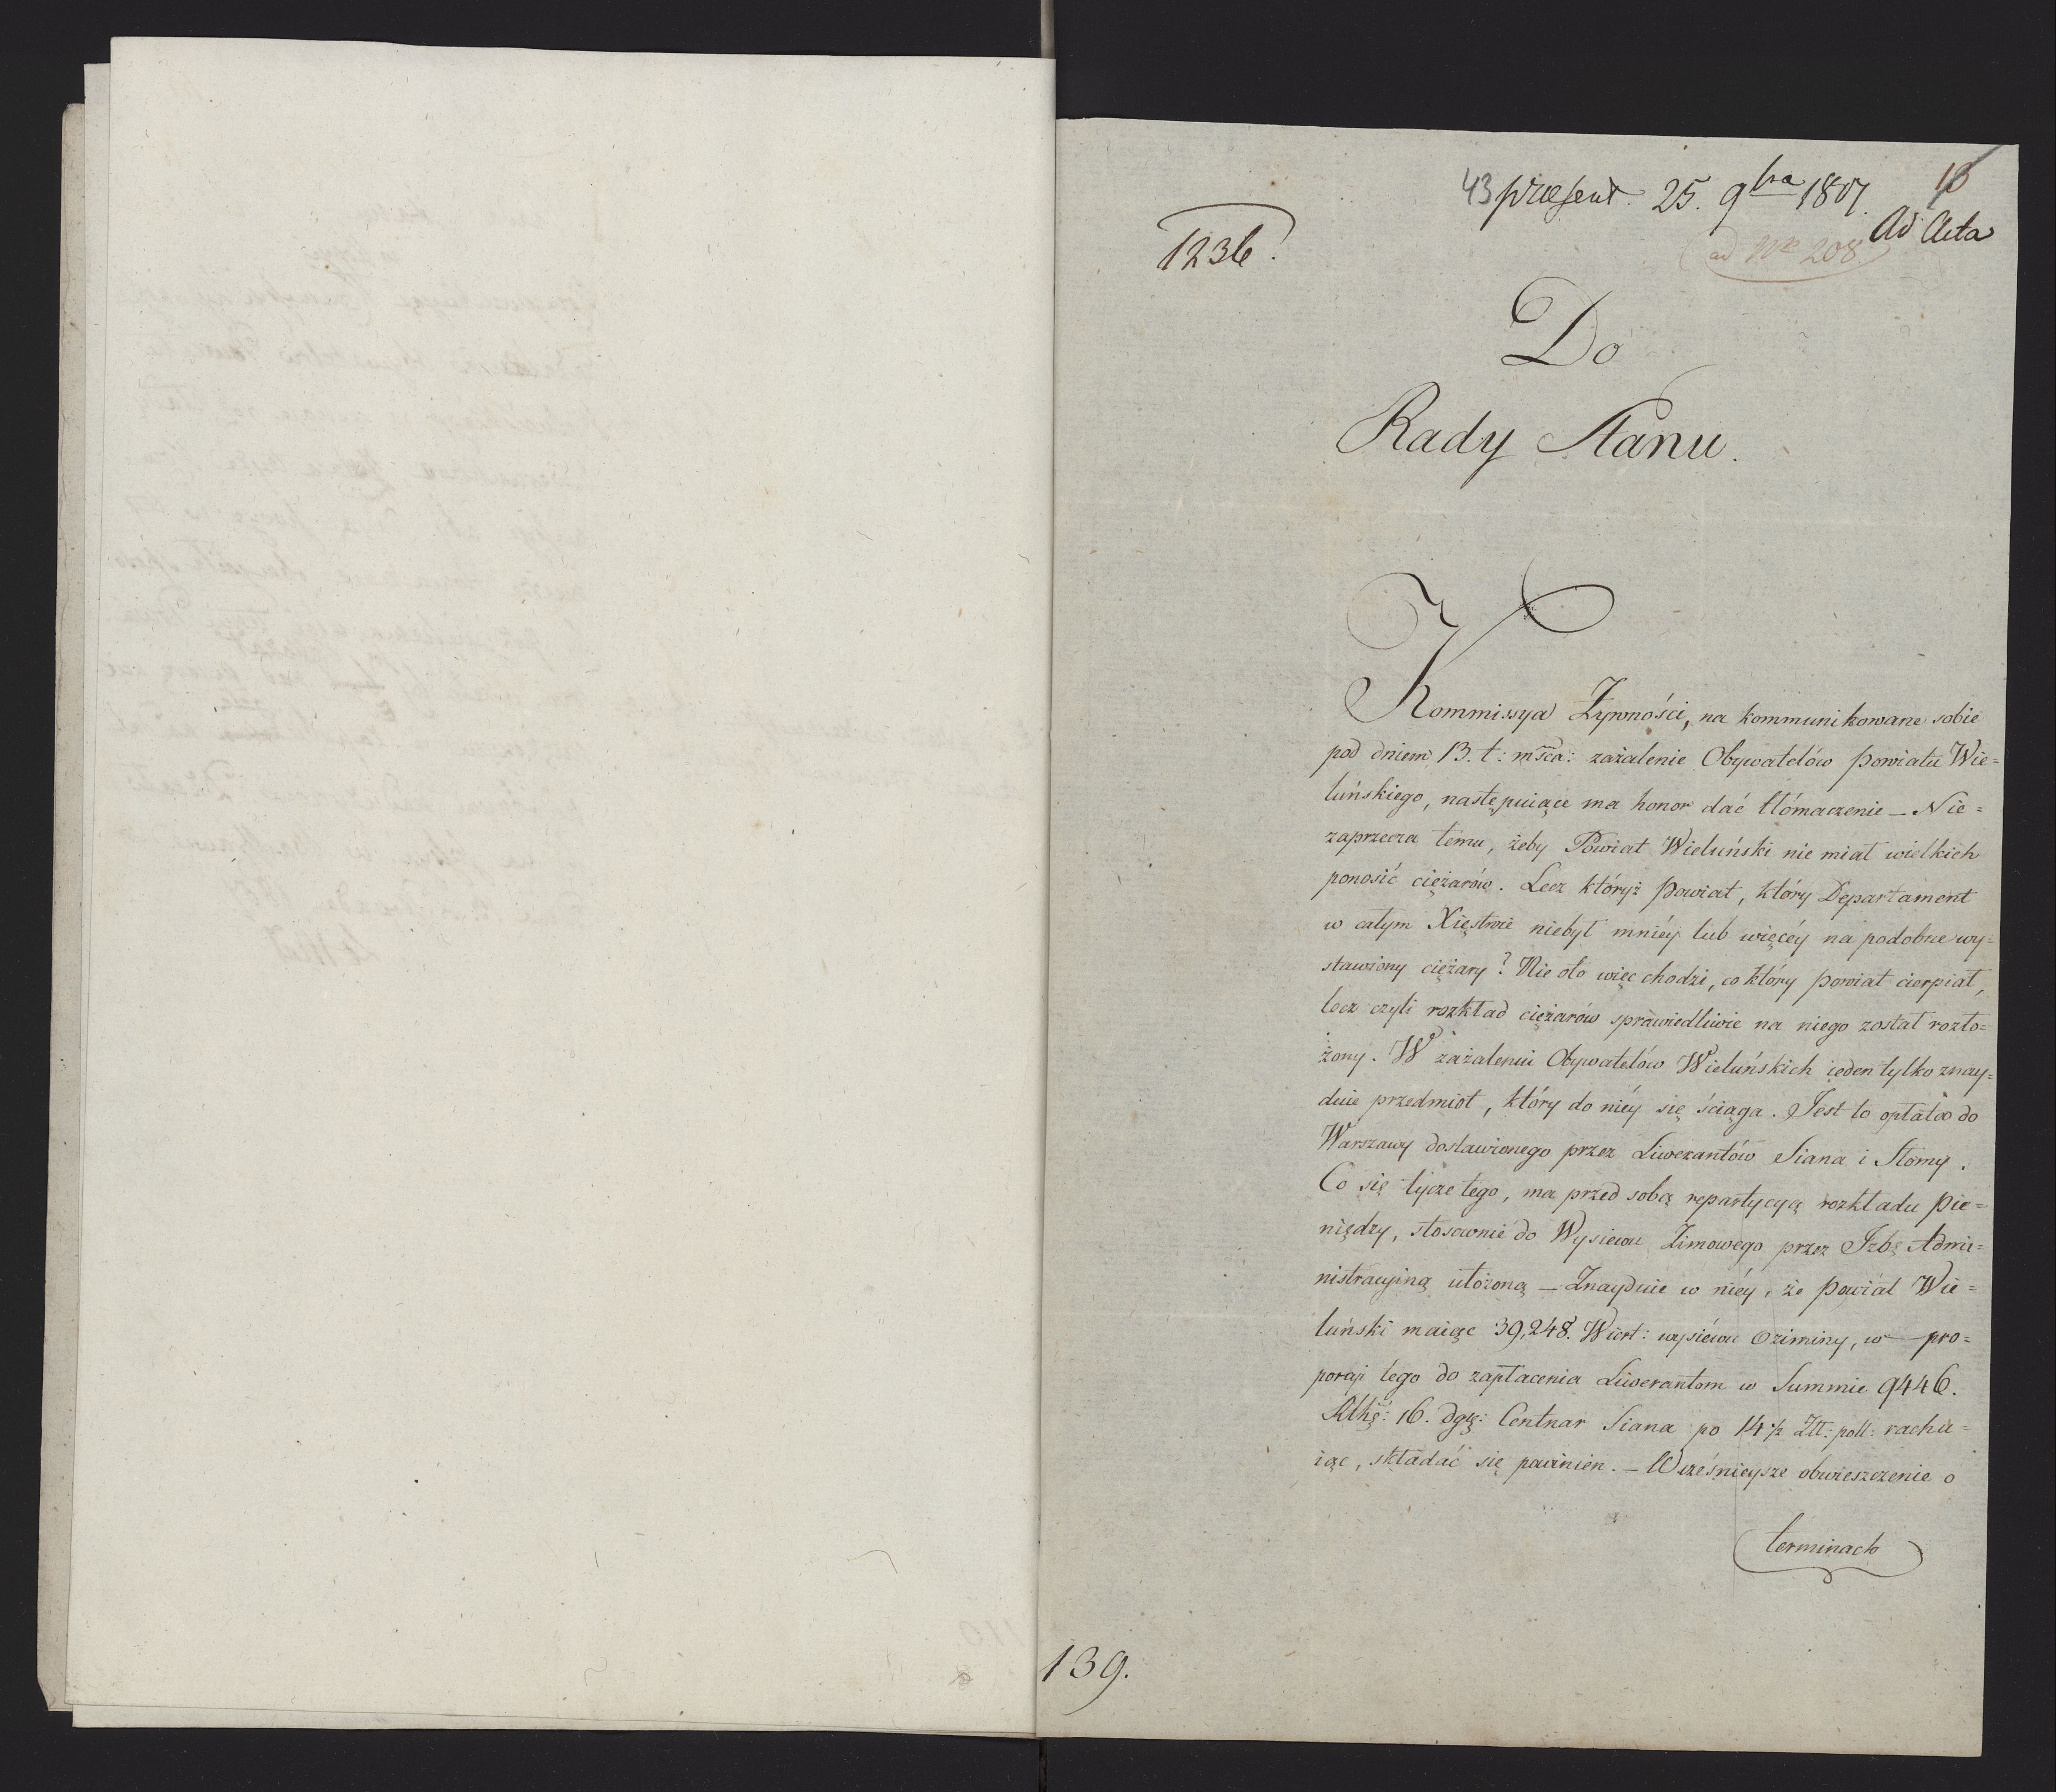 43 praesent. 25. 9bra 1807. 10
Ad Acta
1236.
ad Nr 208
Do
Rady Stanu.
Kommissya Żywności, na kommunikowane sobie
pod dniem 13. t: mśca: zażalenie Obywatelów Powiatu Wie=
luńskiego, następuiące ma honor dać tłómaczenie _ Nie=
zaprzecza temu, żeby Powiat Wieluński nie miał wielkich
ponosić ciężarów. Lecz któryż Powiat, który Departament
w całym Xięstwie niebył mniéy lub więcéy na podobne wy=
stawiony ciężary? Nie oto więc chodzi, co który Powiat cierpiał,
lecz czyli rozkład ciężarów sprawiedliwie na niego został rozło=
żony. W zażaleniu Obywatelów Wieluńskich ieden tylko znay=
duie przedmiot, który do niéy się ściąga. Jest to opłata do
Warszawy dostawionego przez Liwerantów Siana i Słomy.
Co się tycze tego, ma przed sobą repartycyą rozkładu Pie=
niędzy, stosownie do Wysiewu Zimowego przez Izbę Admi=
nistracyiną ułożoną _ Znayduie w niéy, że Powiat Wie=
luński maiąc 39,248. Wiert: wysiewu Oziminy, w pro=
porcji tego do zapłacenia Liwerantom w Summie 9446.
Rthę: 16. dgę: Centnar Siana po 14½ Złł: poll: rachu=
iąc, składać się powinien. _ Wcześnieysze obwieszczenie o
terminach
139.